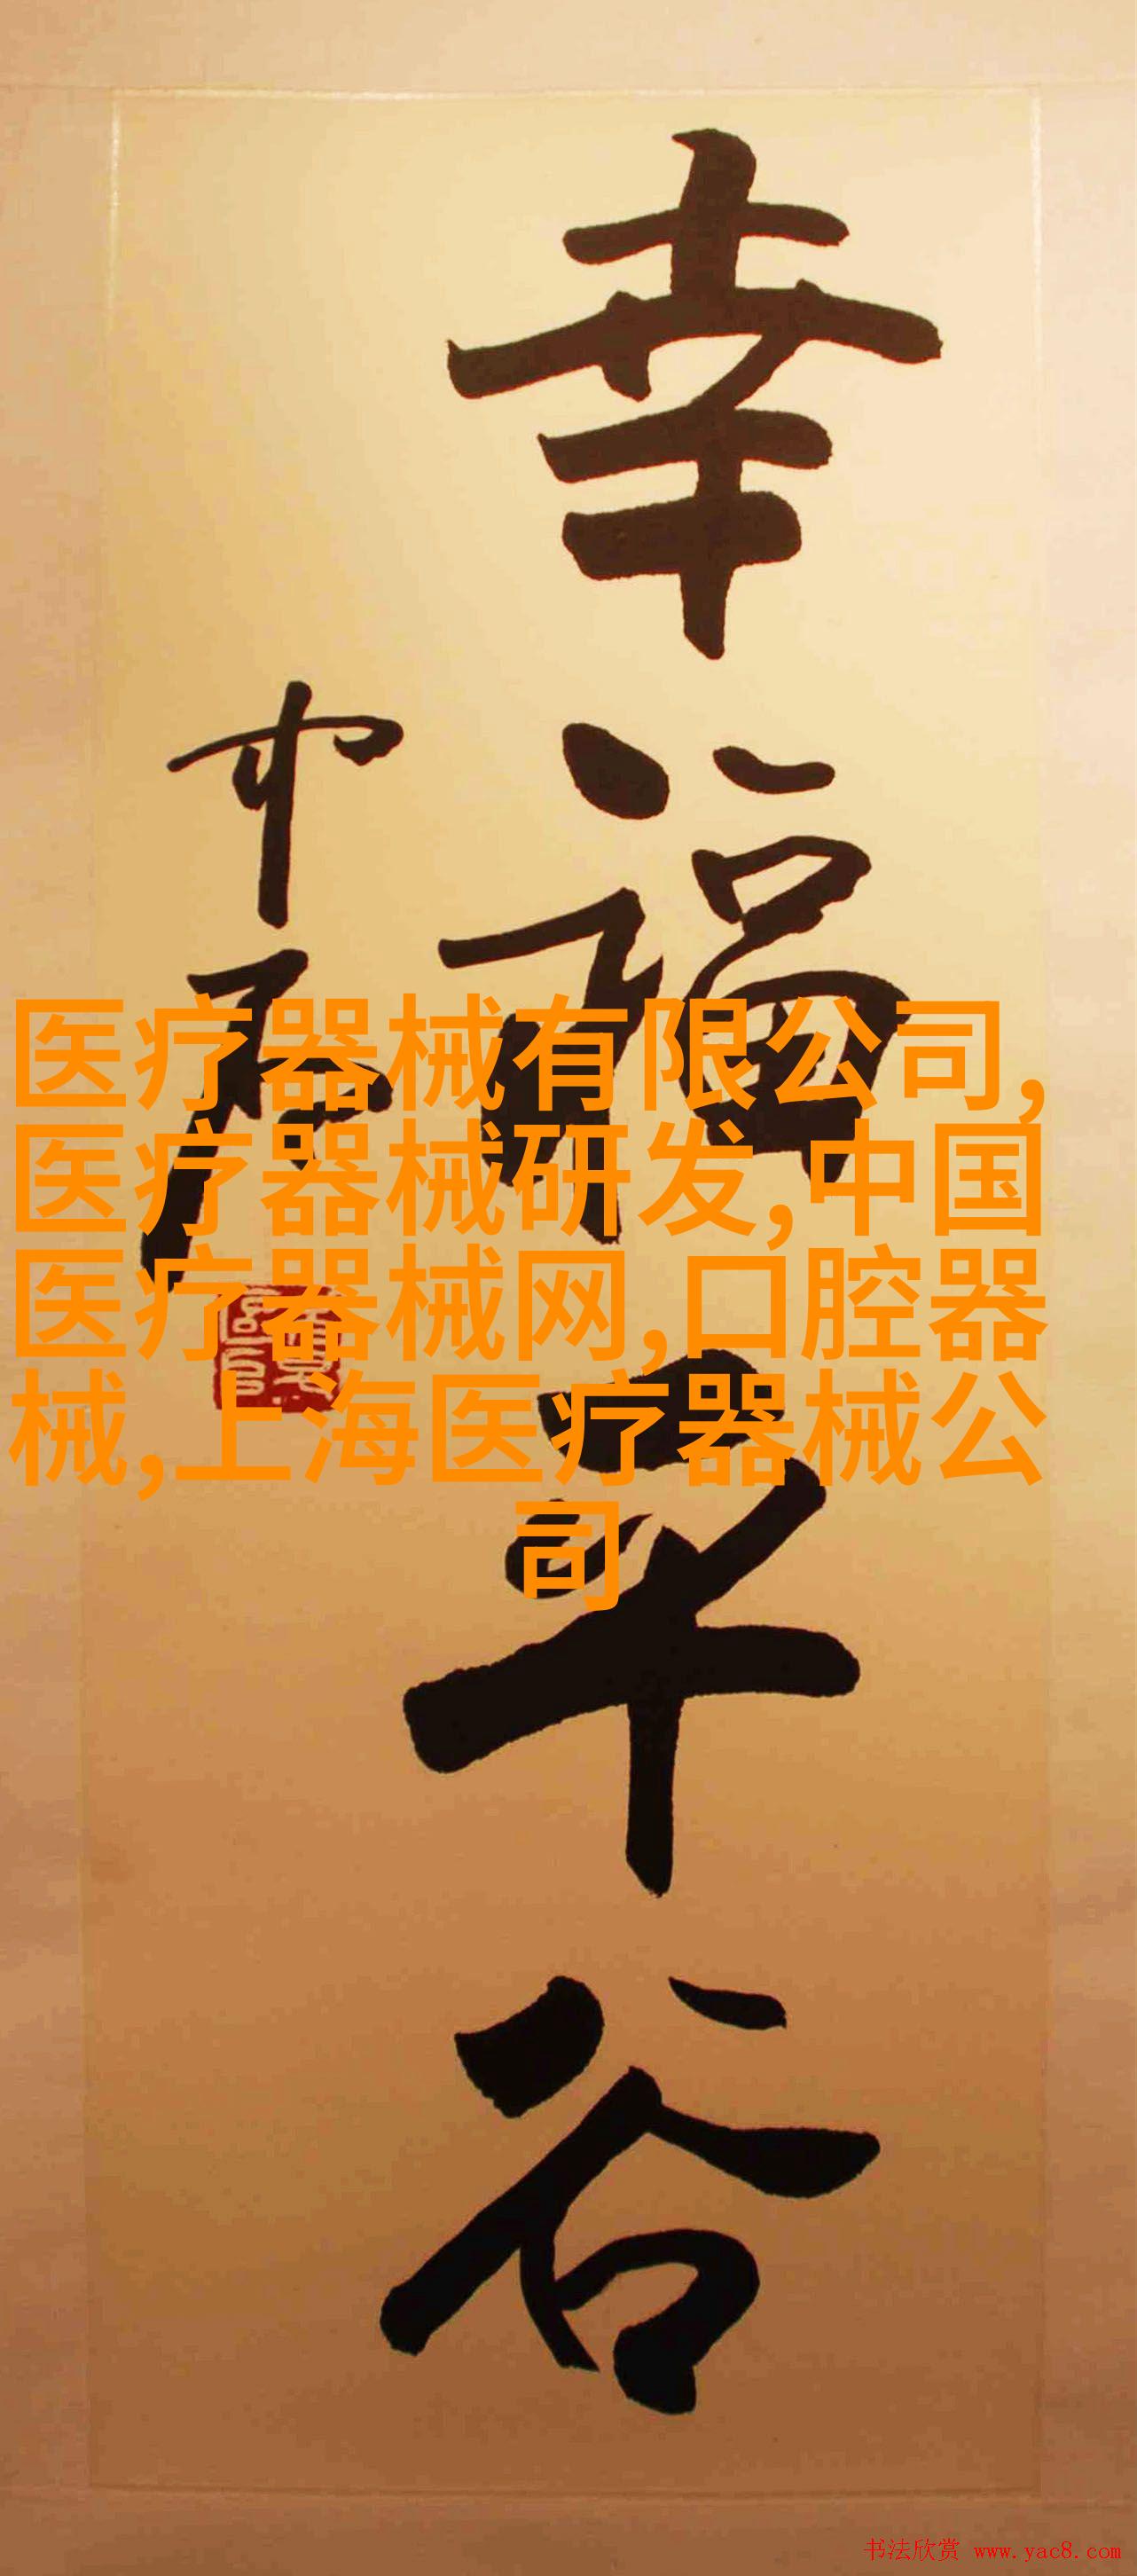 幸福平谷
医疗器械有限公司,
医疗器械研发,中国
医疗器械网,口腔器
械,上海医疗器械公
司
书法欣赏 www.yac8.com